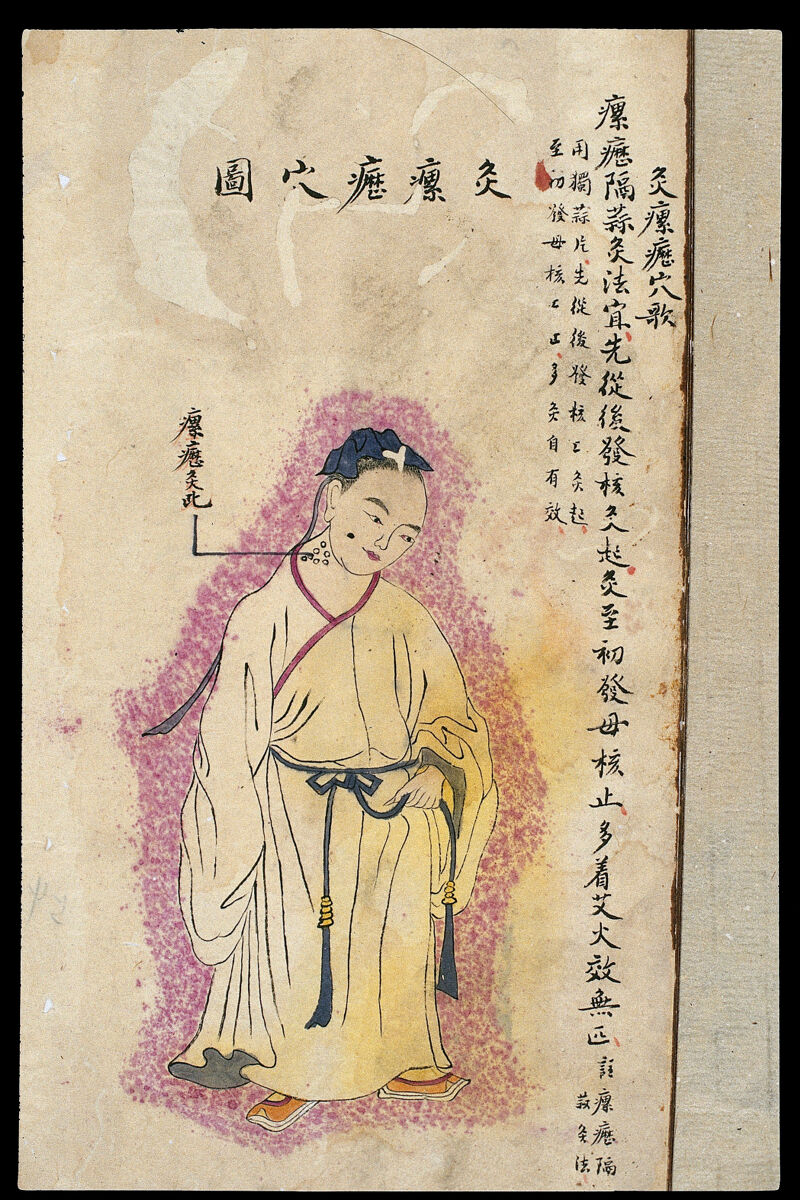 灸瘰癧穴歌
瘰癧隔蒜灸法宜先從後發核灸起灸至初發母核止多着艾火效無匹註瘰癧隔
蒜灸法
用獨蒜片先從後發核上灸起
至初發母核上止多灸自有效
灸瘰癧穴圖
瘰癧灸此